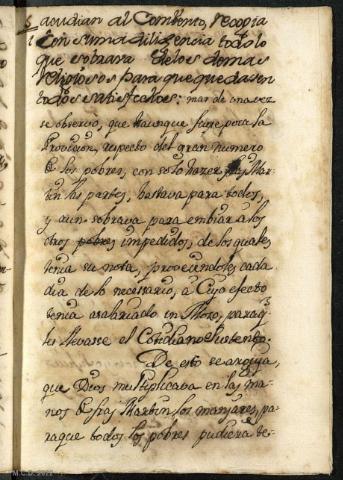 acudian al Combento, recogia
con suma diligencia todo lo
que sobrava de los demas
Religiosos para que quedasen
todos satisfechos: mas de una vez
se observó, que aunque fuere poca la
Provicion, respecto del gran numero
de los pobres, con solo hazer fray Mar-
tin las partes, bastava para todos,
y aun sobrava para embiar a los
otros pobres impedidos, de los quales
tenia su nota, proveiendoles cada
dia de lo necessario, a cuyo efecto
tenia asalariado un Mozo, para q.
les llevasse el Cotidiano sustento.
De esto se arguia,
que Dios multiplicava en las ma-
nos de fray Martin los manjares, pa-
ra que todos los pobres pudiera te-
M.C.D. 2022